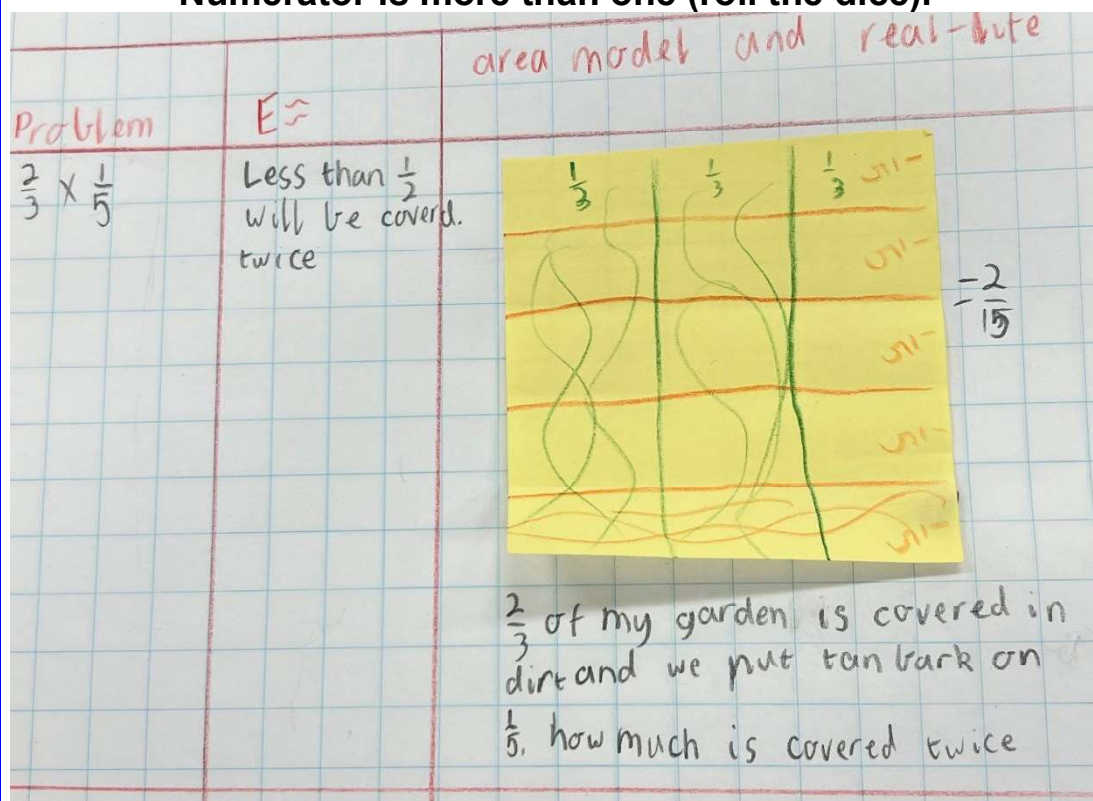 Numerator is more than one (roll the dice).
area model and real-life
Problem
E≈
2/3 × 1/5
Less than 1/2
will be coverd.
twice
1/3
1/3
1/3
1/5
1/5
1/5
1/5
1/5
= 2/15
2/3 of my garden is covered in
dirt and we put tan bark on
1/5. how much is covered twice